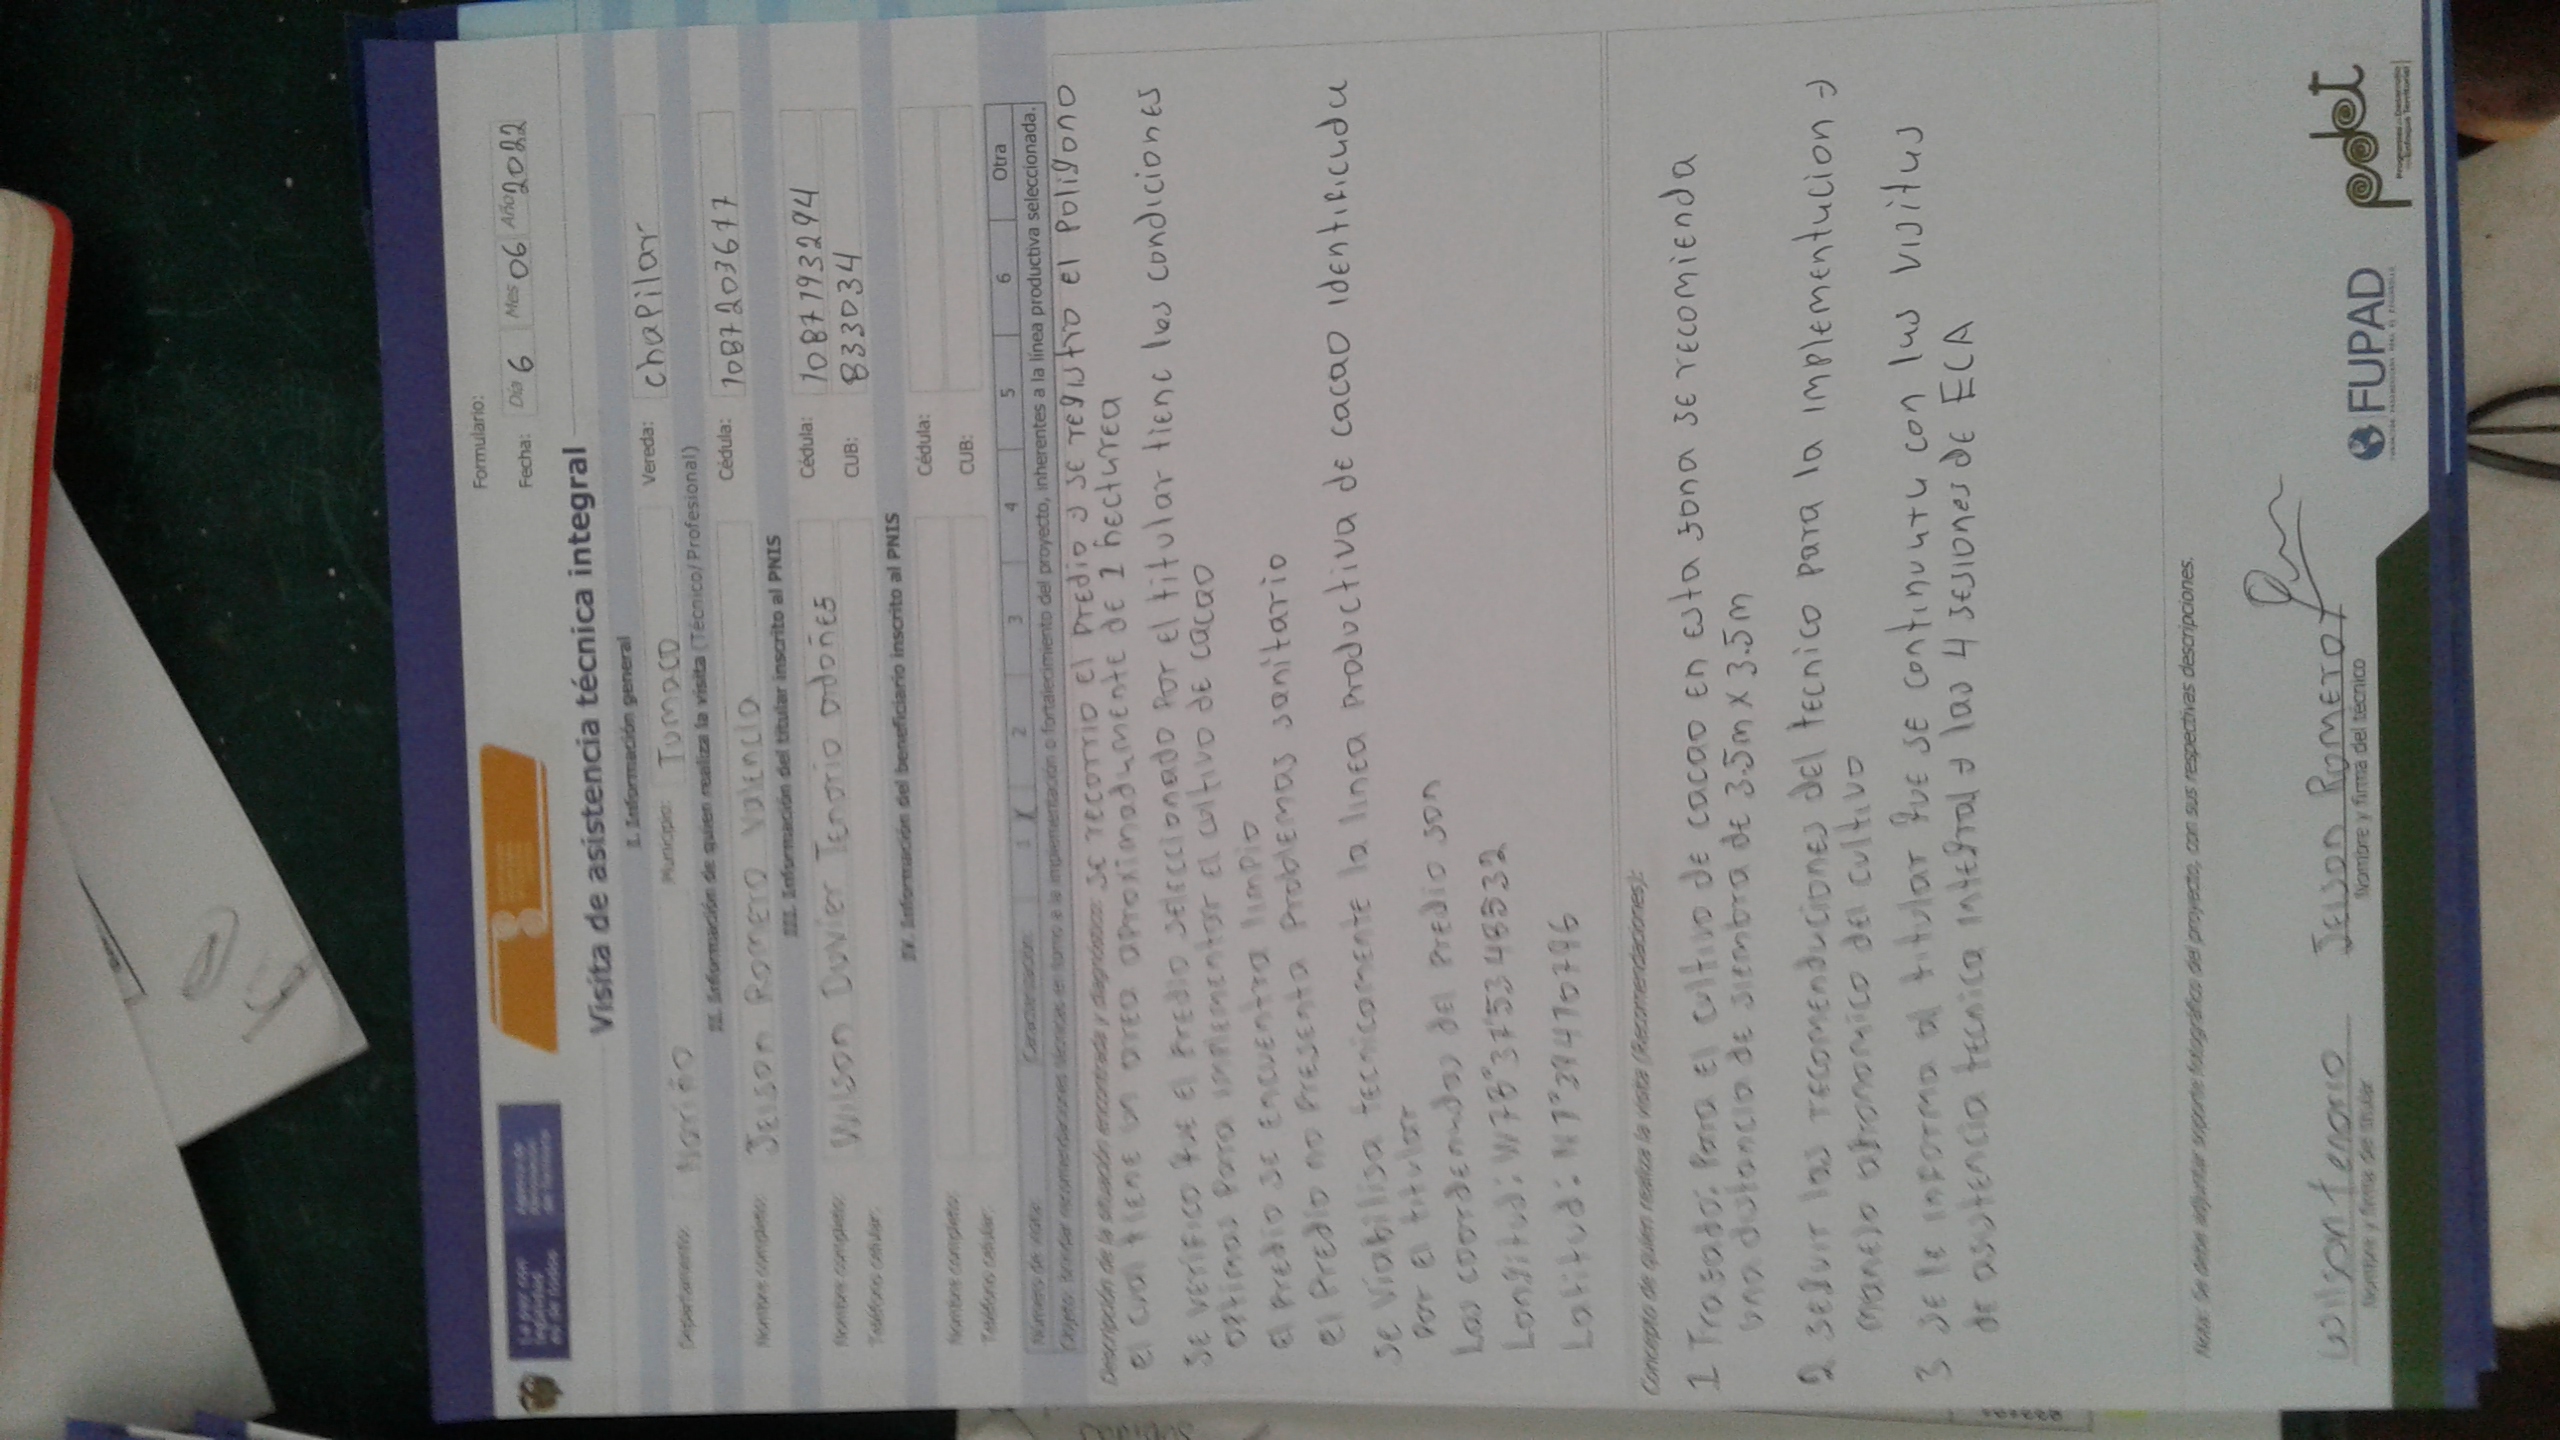 Formulario:
Fecha: Día 6 Mes 06 Año 2022
Visita de asistencia técnica integral
I. Información general
Departamento: Nariño Municipio: Tumaco Vereda: chaPilar
II. Información de quien realiza la visita (Técnico/ Profesional)
Nombre completo: Jeison Romero Valencia Cédula: 1087203677
III. Información del titular inscrito al PNIS
Nombre completo: Wilson Duvier Tenorio ordoñes Cédula: 1087193294
Teléfono celular: CUB: 8333034
IV. Información del beneficiario inscrito al PNIS
Nombre completo: Cédula:
Teléfono celular: CUB:
Número de visita: Caracterización: 1 X 2 3 4 5 6 Otra
Objeto: Brindar recomendaciones técnicas en torno a la implementación o fortalecimiento del proyecto, inherentes a la línea productiva seleccionada.
Descripción de la situación encontrada y diagnóstico: se recorrio el Predio y se registro el Poligono
el cual tiene un area aproximadamente de 1 hectarea
se verifico que el Predio seleccionado Por el titular tiene las condiciones
optimas Para implementar el cultivo de cacao
el Predio se encuentra limpio
el Predio no Presenta Problemas sanitario
se viabilisa tecnicamente la linea productiva de cacao identificada
Por el titular
Las coordenadas del Predio son
Longitud: W78°37'53485532
Latitud: N1°
Concepto de quien realiza la visita (Recomendaciones):
1 Trasado: Para el cultivo de cacao en esta sona se recomienda
una distancia de siembra de 3.5m x 3.5m
2 seguir las recomendaciones del tecnico para la implementacion y
manejo agronomico del cultivo
3 se le informa al titular que se continuara con las visitas
de asistencia tecnica integral y las 4 sesiones de ECA
Nota: Se deben adjuntar soporte fotográfico del proyecto, con sus respectivas descripciones.
wilson tenorio Jeison Romero
Nombre y firma del titular Nombre y firma del técnico
FUPAD
pdet